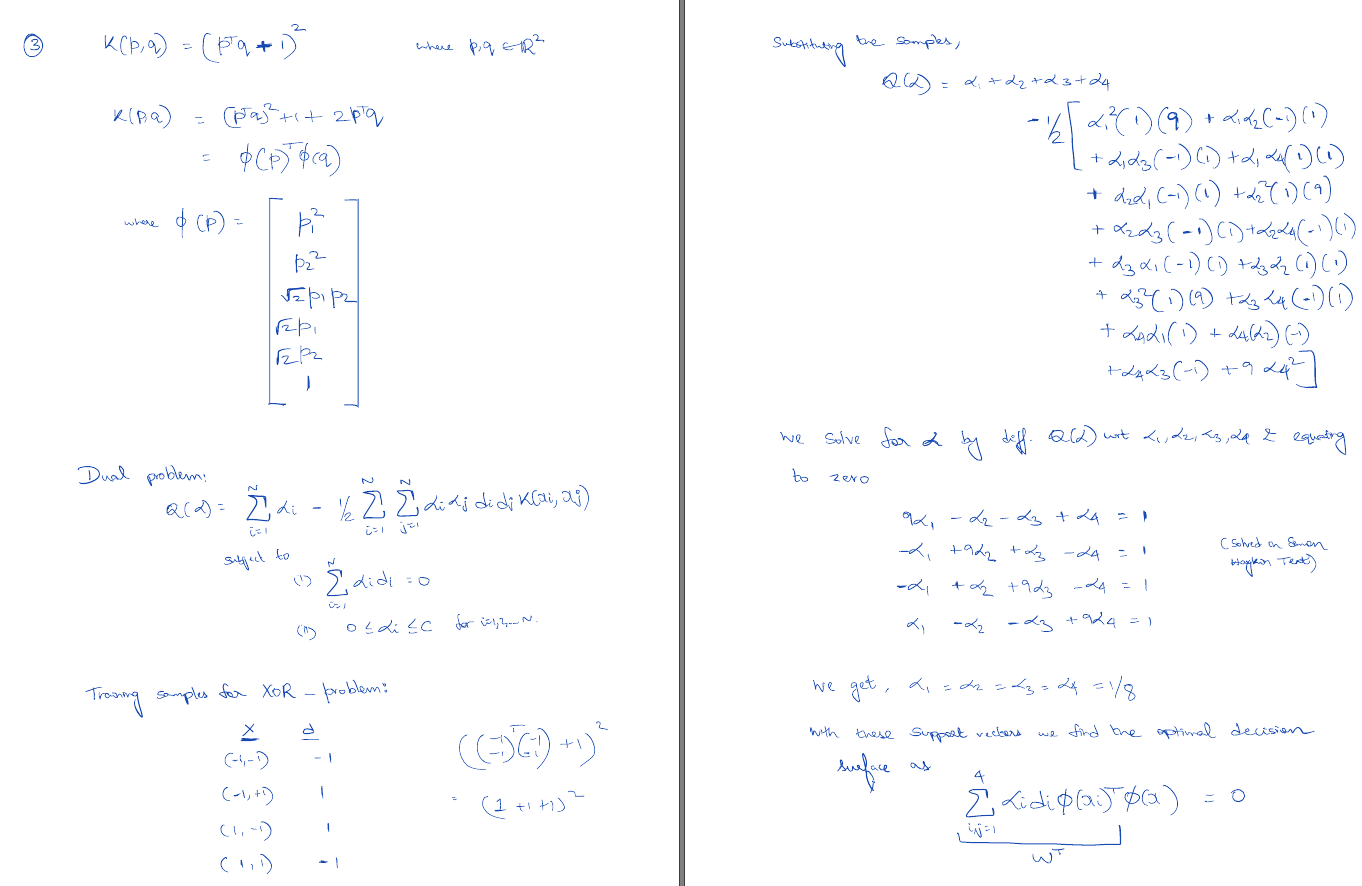 ③ K(p,q) = (pᵀq + 1)² where p,q ∈ ℝ²
K(p,q) = (pᵀq)² + 1 + 2pᵀq
= ϕ(p)ᵀϕ(q)
where ϕ(p) = [ p₁²
p₂²
√2 p₁ p₂
√2 p₁
√2 p₂
1 ]
Dual problem:
Q(α) = Σ_{i=1}^{N} αi - 1/2 Σ_{i=1}^{N} Σ_{j=1}^{N} αi αj di dj K(xi, xj)
subject to
(i) Σ_{i=1}^{N} αi di = 0
(ii) 0 ≤ αi ≤ C for i=1,2,...N.
Training samples for XOR - problem:
x d
(-1,-1) -1
(-1,+1) 1
(1,-1) 1
(1,1) -1
((-1 -1)ᵀ(-1 -1) + 1)²
= (1 + 1 + 1)²
Substituting the samples,
Q(α) = α₁ + α₂ + α₃ + α₄
- 1/2 [ α₁²(1)(9) + α₁α₂(-1)(1)
+ α₁α₃(-1)(1) + α₁α₄(1)(1)
+ α₂α₁(-1)(1) + α₂²(1)(9)
+ α₂α₃(-1)(1) + α₂α₄(-1)(1)
+ α₃α₁(-1)(1) + α₃α₂(1)(1)
+ α₃²(1)(9) + α₃α₄(-1)(1)
+ α₄α₁(1) + α₄(α₂)(-1)
+ α₄α₃(-1) + 9α₄² ]
We solve for α by diff. Q(α) wrt α₁, α₂, α₃, α₄ & equating
to zero
9α₁ - α₂ - α₃ + α₄ = 1
-α₁ + 9α₂ + α₃ - α₄ = 1
-α₁ + α₂ + 9α₃ - α₄ = 1
α₁ - α₂ - α₃ + 9α₄ = 1
(Solved in Simon
Haykin Text)
We get, α₁ = α₂ = α₃ = α₄ = 1/8
With these support vectors we find the optimal decision
surface as
Σ_{i,j=1}^{4} αi di ϕ(xi)ᵀ ϕ(x) = 0
Wᵀ